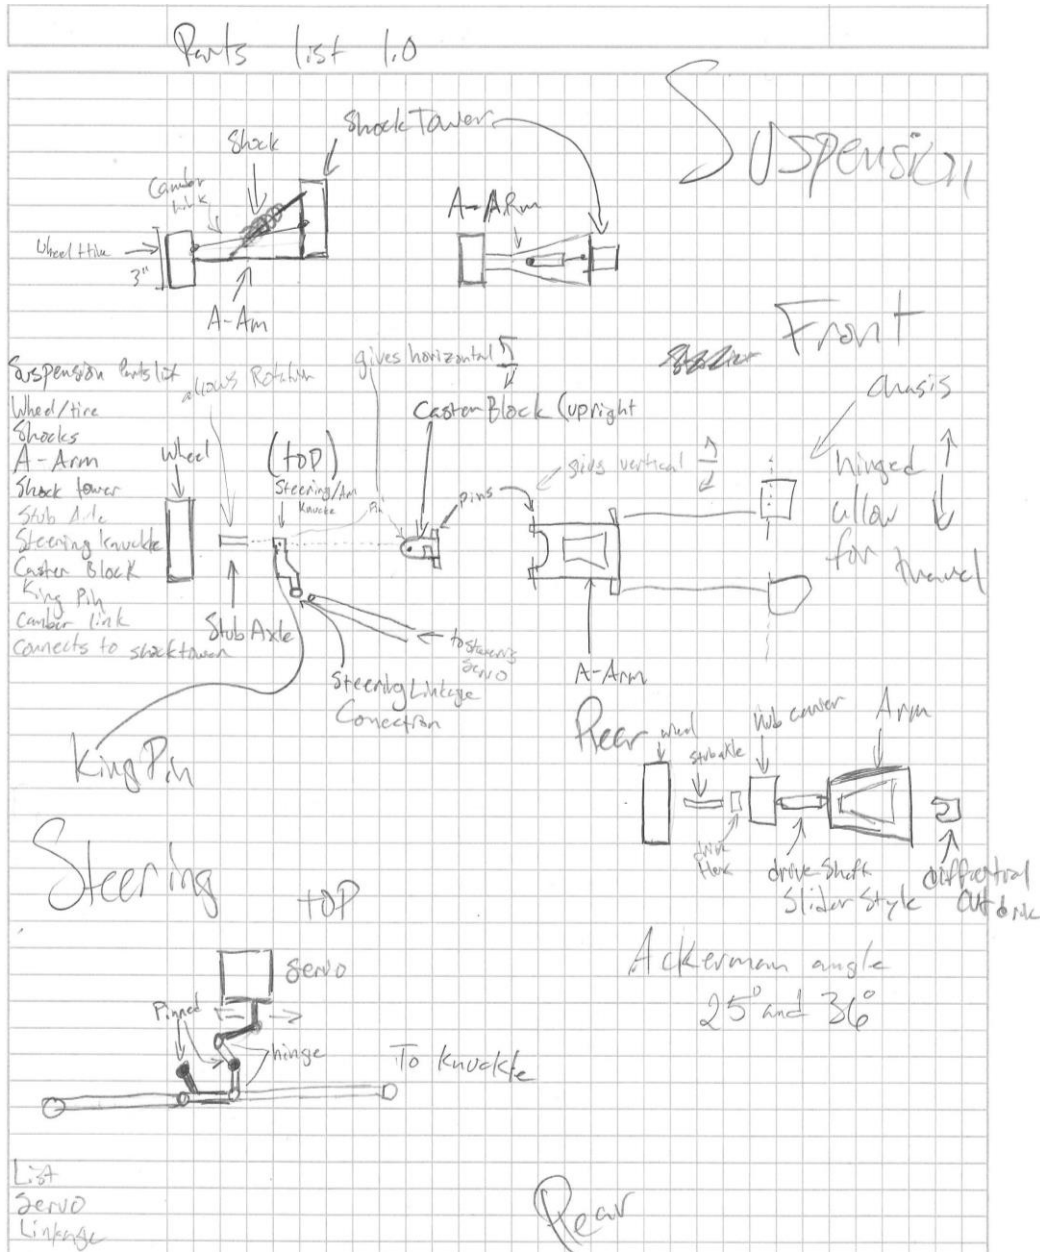 Parts list 1.0
Suspension
Shock Tower
Shock
Camber
link
A-ARm
Wheel + tire
3"
A-Arm
Front
Suspension Parts list
Wheel/tire
Shocks
A-Arm
Shock tower
Stub Axle
Steering knuckle
Caster Block
King Pin
Camber link
Connects to shock tower
allows Rotation
gives horizontal
Caster Block (upright
chasis
wheel
(top)
Steering/Arm
Knuckle
Pin
pins
gives vertical
hinged
allow
for travel
Stub Axle
to steering
servo
Steering Linkage
Conection
A-Arm
King Pin
Rear
wheel
stub axle
hub carrier
Arm
drive
drive shaft
Slider Style
diffrential
Out drive
Steering
top
Servo
Pinned
hinge
To knuckle
Ackerman angle
25° and 36°
List
Servo
Linkage
Rear